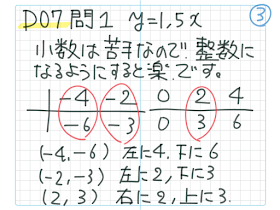 D07 問1 y=1,5x ③
小数は苦手なので、整数に
なるようにすると楽です。
-4 -2 0 2 4
-6 -3 0 3 6
(-4,-6) 左に4,下に6
(-2,-3) 左に2,下に3
(2,3) 右に2,上に3.